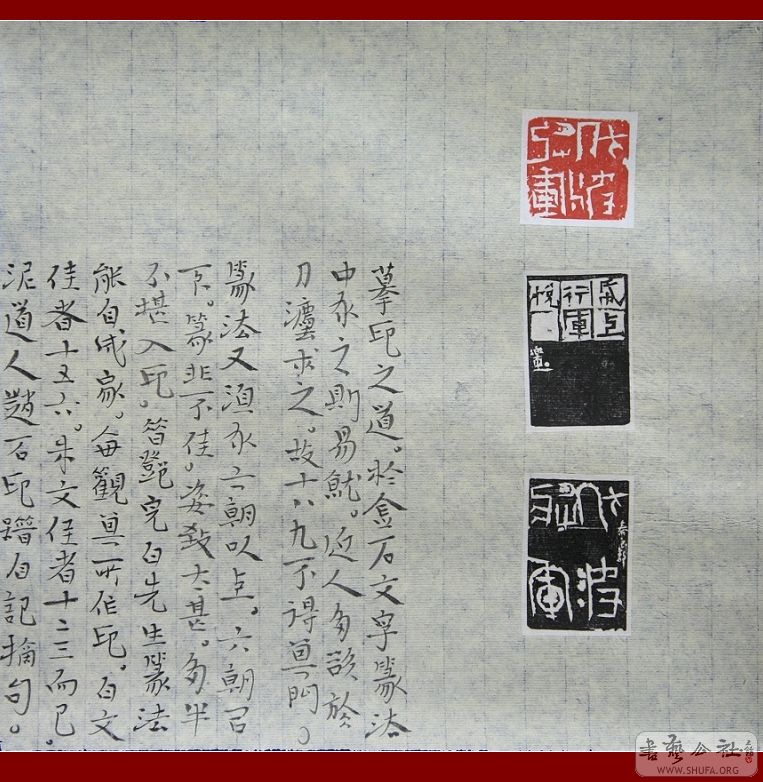 摹印之道。於金石文字篆法
中求之則易就。近人多談於
刀灋求之。故十八九不得其門。
篆法又須求六朝以上。六朝已
下。篆非不佳。姿致太甚。多半
不堪入印。昔鄧完白先生篆法
能自成家。每觀其所作印。白文
佳者十五六。朱文佳者十二三而已。
泥道人趙石印譜自記摘句。
書藝公社
WWW.SHUFA.ORG